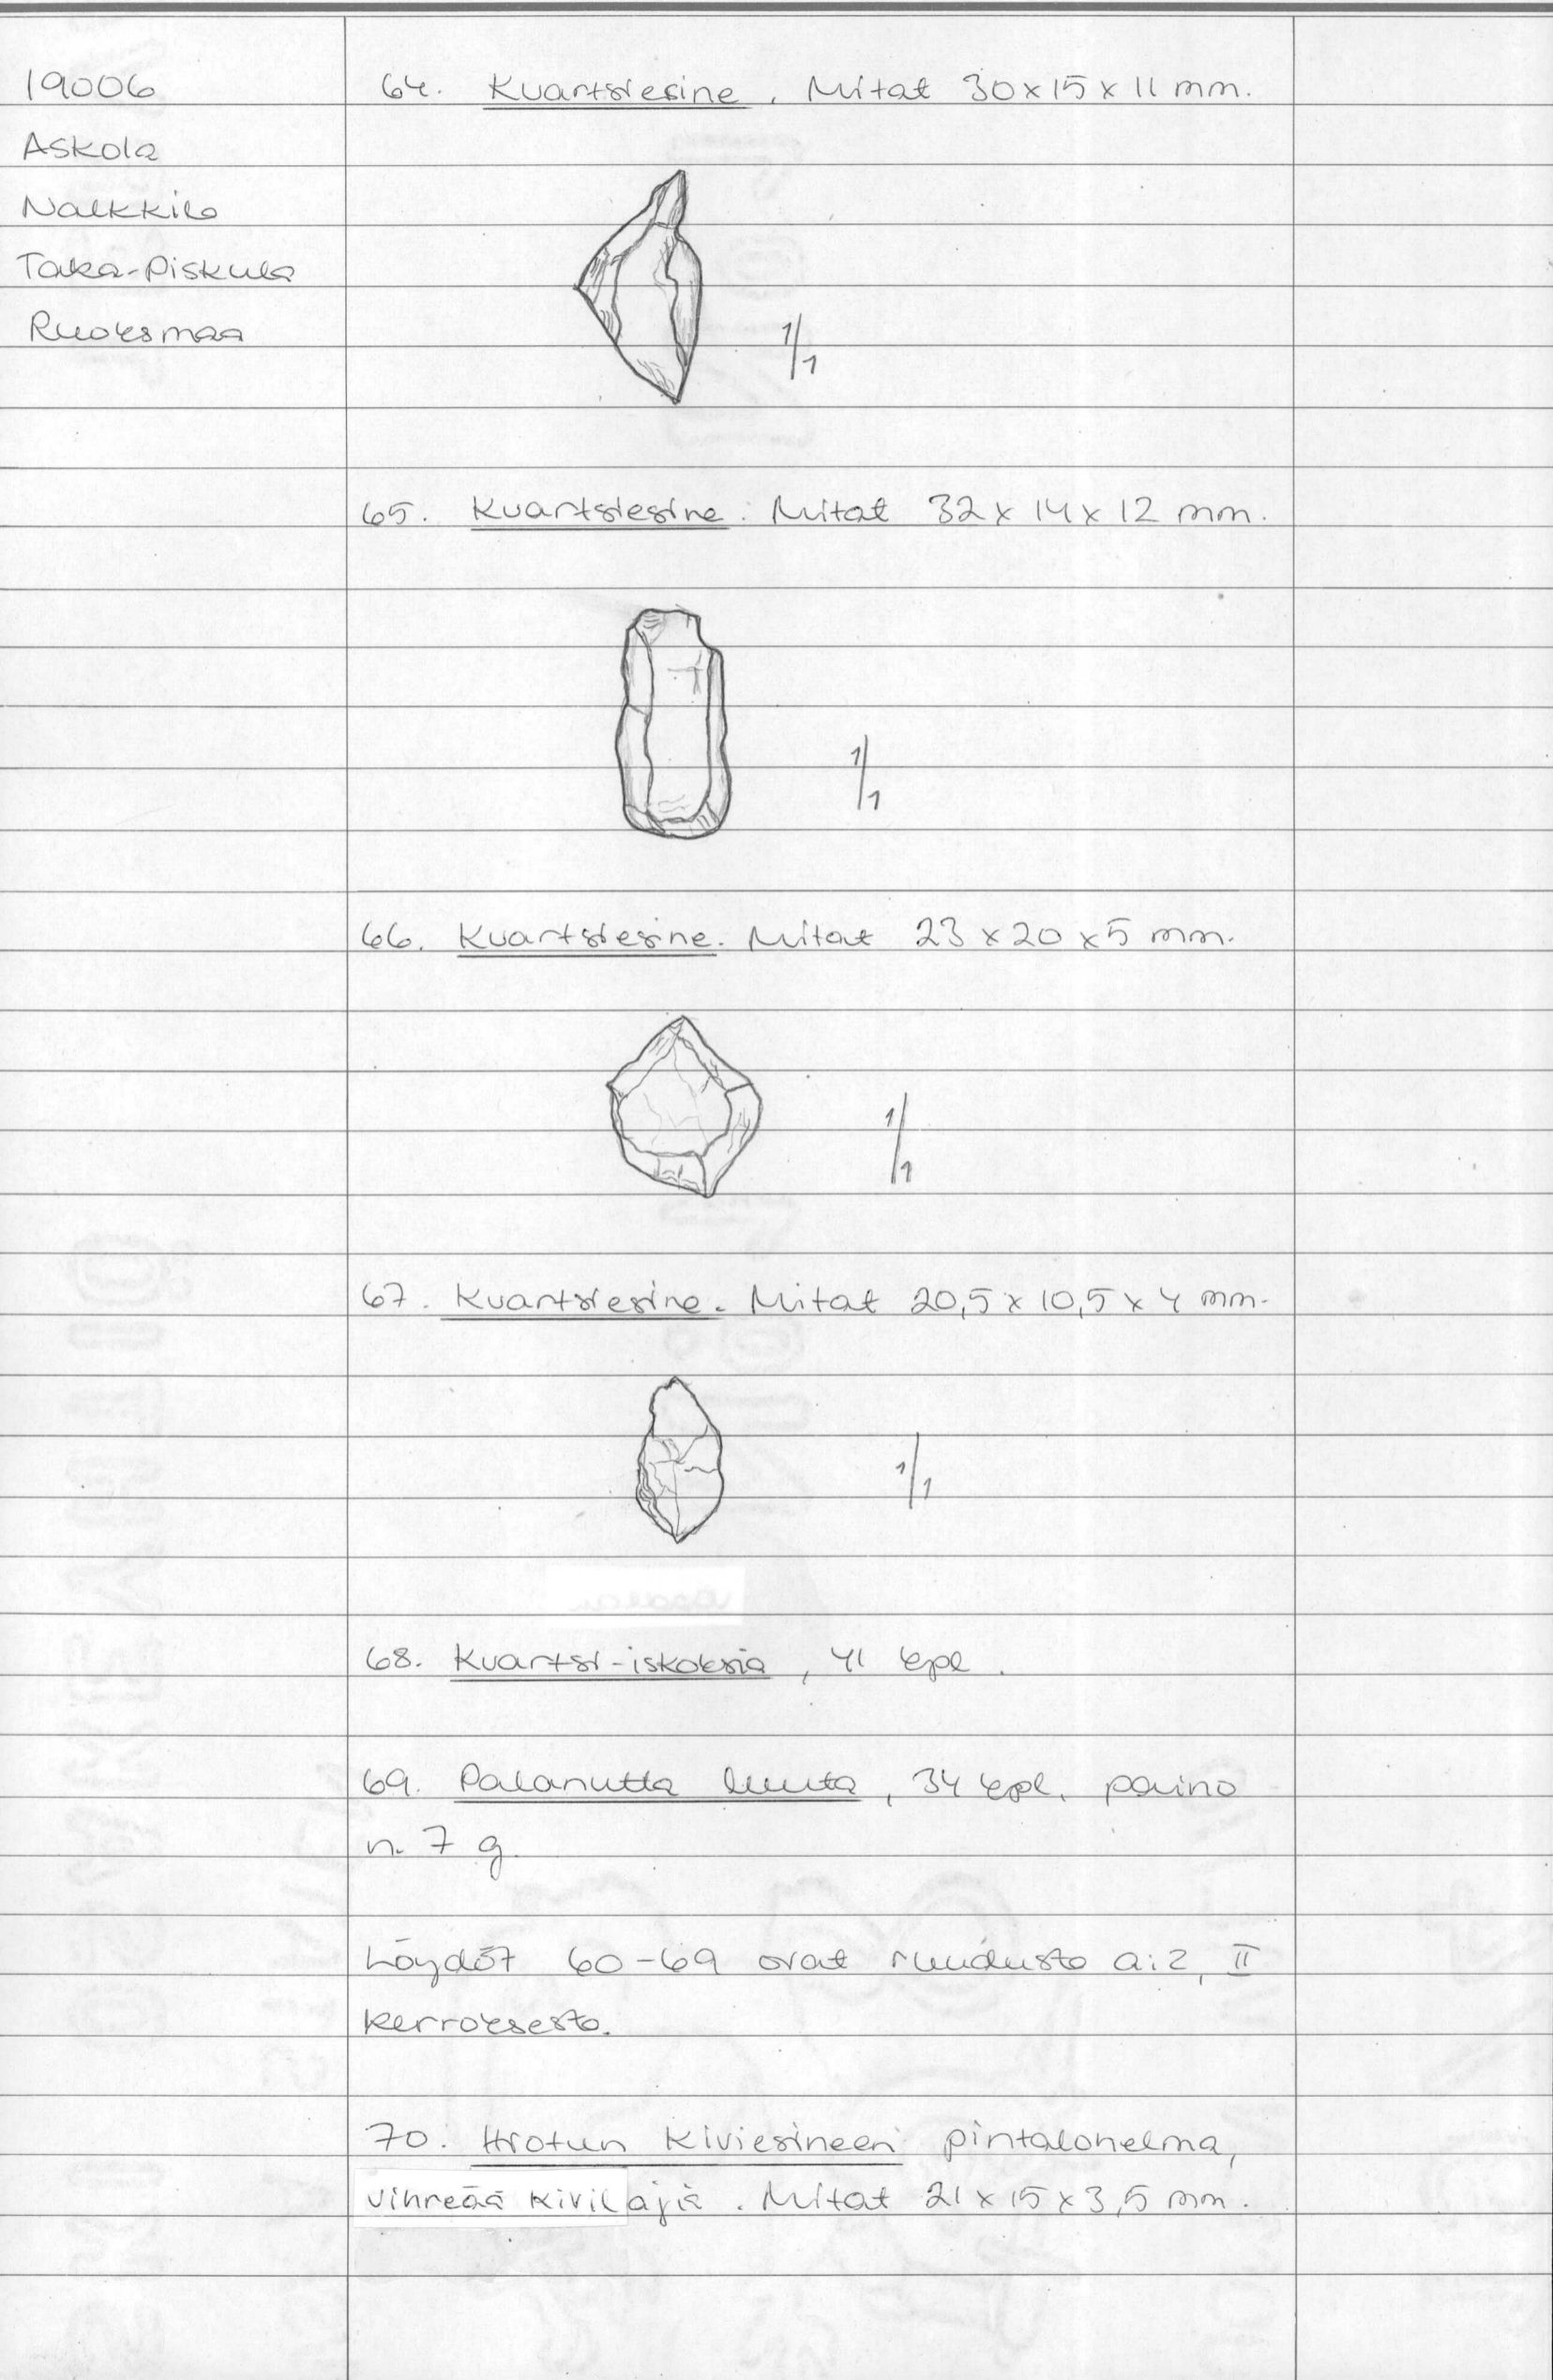 19006
Askola
Nalkkila
Taka-Piskula
Ruoksmaa
64. Kvartsiesine. Mitat 30x15x11 mm.
1/1
65. Kvartsiesine. Mitat 32x14x12 mm.
1/1
66. Kvartsiesine. Mitat 23x20x5 mm.
1/1
67. Kvartsiesine. Mitat 20,5x10,5x4 mm.
1/1
68. Kvartsi-iskoksia, 41 kpl.
69. Palanutta luuta, 34 kpl. paino
n. 7 g.
Löydöt 60-69 ovat ruudusta a:2, II
kerroksesta.
70. Hiotun kiviesineen pintalohelma,
vihreää kivilajia. Mitat 21x15x3,5 mm.